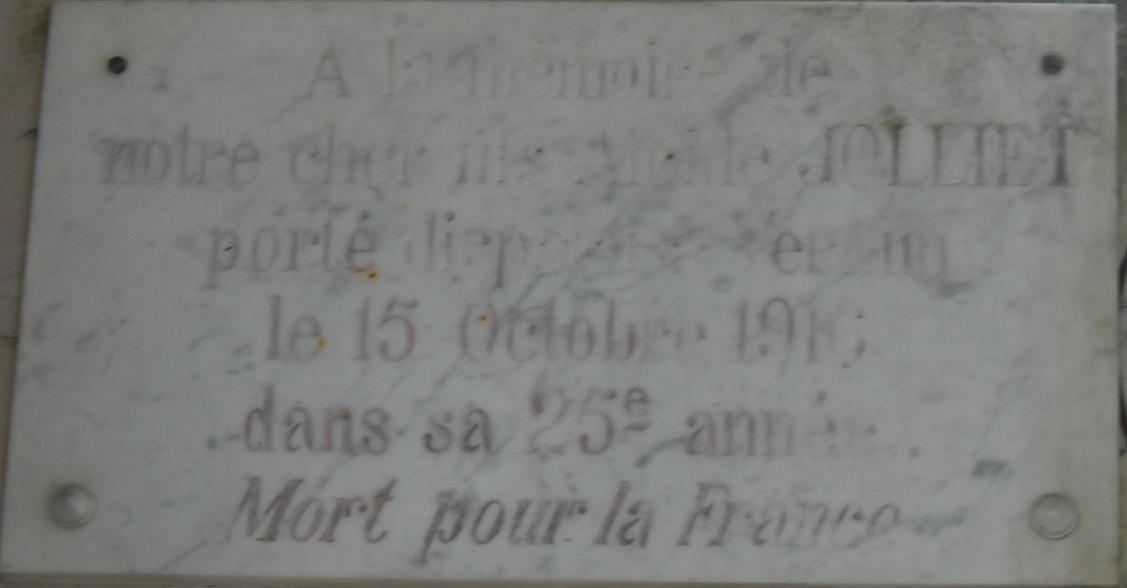 A la mémoire de
notre cher fils Alcide JOLLIET
porté disparu à Verdun
le 15 Octobre 1916
dans sa 25e année.
Mort pour la France